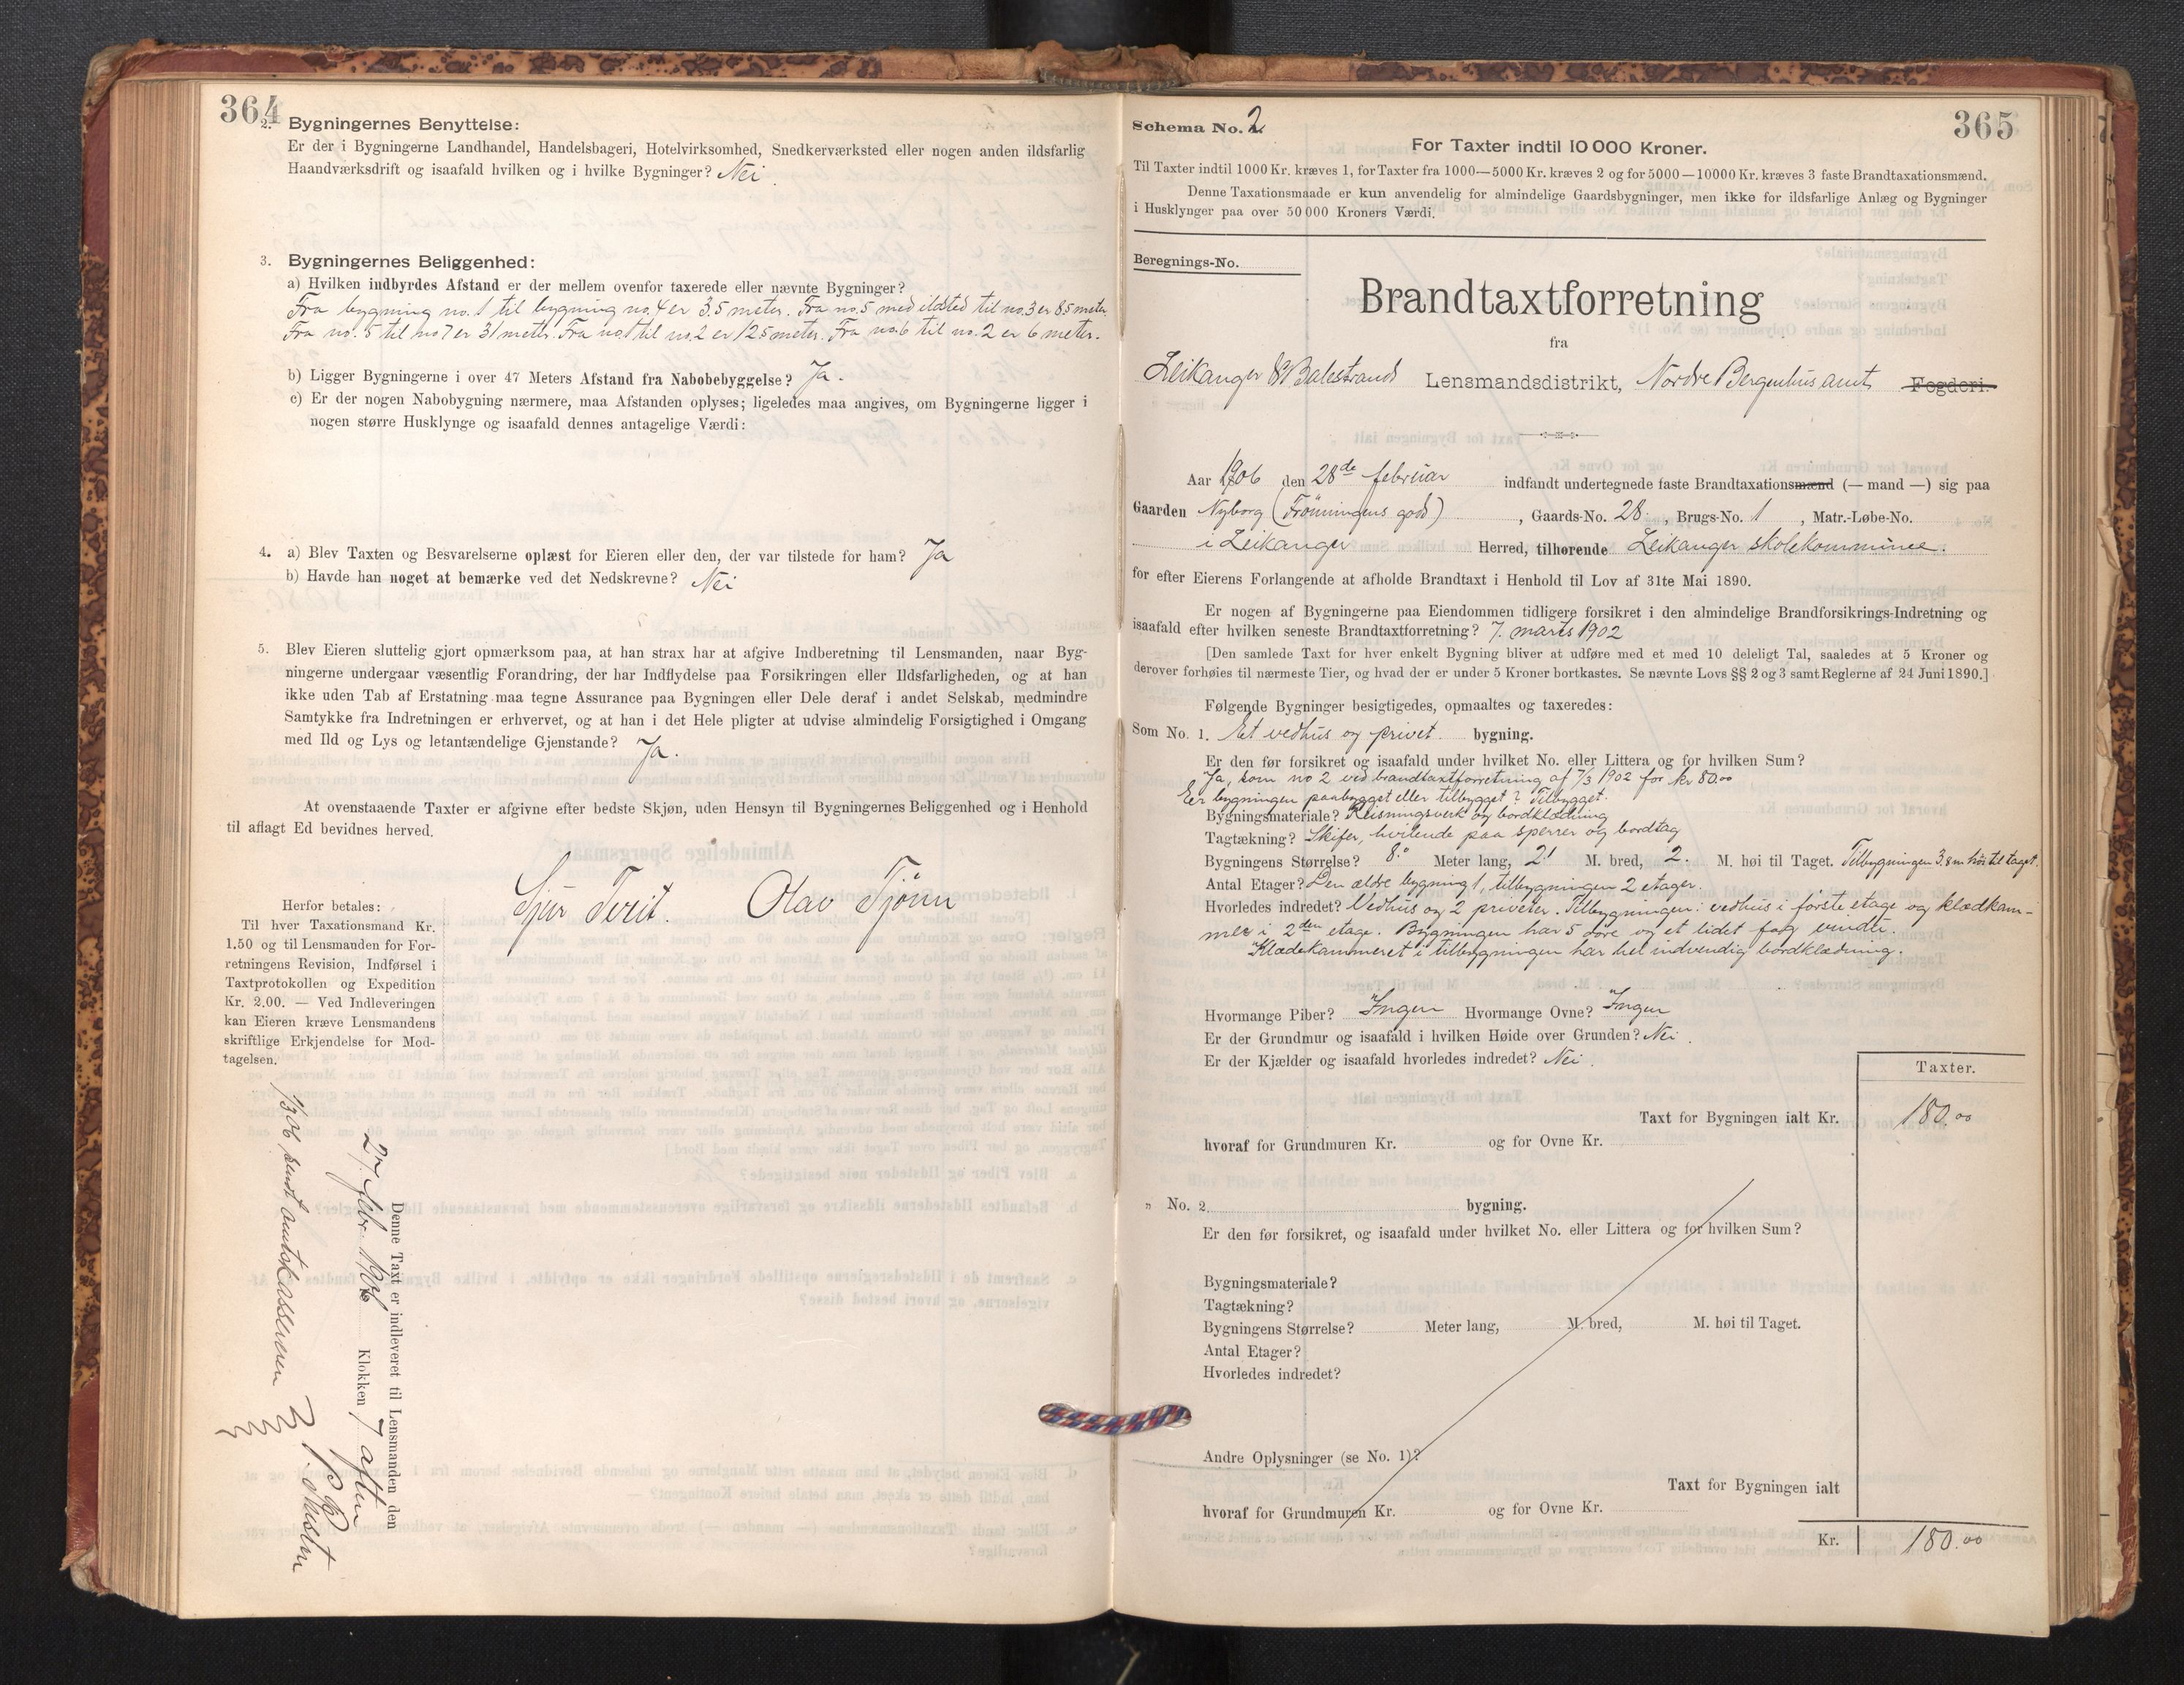 364
2. Bygningernes Benyttelse:
Er der i Bygningerne Landhandel, Handelsbageri, Hotelvirksomhed, Snedkerværksted eller nogen anden ildsfarlig
Haandværksdrift og isaafald hvilken og i hvilke Bygninger? Nei.
3. Bygningernes Beliggenhed:
a) Hvilken indbyrdes Afstand er der mellem ovenfor taxerede eller nævnte Bygninger?
Fra bygning no. 1 til bygning no. 4 er 3.5 meter. Fra no. 5 med ildsted til no. 3 er 85 meter.
Fra no. 5 til no 7 er 31 meter. Fra no. 1 til no. 2 er 12.5 meter. Fra no. 6 til no. 2 er 6 meter.
b) Ligger Bygningerne i over 47 Meters Afstand fra Nabobebyggelse? Ja.
c) Er der nogen Nabobygning nærmere, maa Afstanden oplyses; ligeledes maa angives, om Bygningerne ligger i
nogen større Husklynge og isaafald dennes antagelige Værdi:
4. a) Blev Taxten og Besvarelserne oplæst for Eieren eller den, der var tilstede for ham? Ja
b) Havde han noget at bemærke ved det Nedskrevne? Nei
5. Blev Eieren sluttelig gjort opmærksom paa, at han strax har at afgive Indberetning til Lensmanden, naar Byg-
ningerne undergaar væsentlig Forandring, der har Indflydelse paa Forsikringen eller Ildsfarligheden, og at han
ikke uden Tab af Erstatning maa tegne Assurance paa Bygningen eller Dele deraf i andet Selskab, medmindre
Samtykke fra Indretningen er erhvervet, og at han i det Hele pligter at udvise almindelig Forsigtighed i Omgang
med Ild og Lys og letantændelige Gjenstande? Ja.
At ovenstaaende Taxter er afgivne efter bedste Skjøn, uden Hensyn til Bygningernes Beliggenhed og i Henhold
til aflagt Ed bevidnes herved.
Sjur Tveit. Olav Tjönn
Herfor betales:
Til hver Taxationsmand Kr.
1.50 og til Lensmanden for For-
retningens Revision, Indførsel i
Taxtprotokollen og Expedition
Kr. 2.00. — Ved Indleveringen
kan Eieren kræve Lensmandens
skriftlige Erkjendelse for Mod-
tagelsen.
Denne Taxt er indleveret til Lensmanden den
27. febr. 1906 Klokken 7 aften
1/3 06 sendt amtskassereren
365
Schema No. 2.
For Taxter indtil 10 000 Kroner.
Til Taxter indtil 1000 Kr. kræves 1, for Taxter fra 1000—5000 Kr. kræves 2 og for 5000—10000 Kr. kræves 3 faste Brandtaxationsmænd.
Denne Taxationsmaade er kun anvendelig for almindelige Gaardsbygninger, men ikke for ildsfarlige Anlæg og Bygninger
i Husklynger paa over 50 000 Kroners Værdi.
Beregnings-No.
Brandtaxtforretning
fra
Leikanger & Balestrand Lensmandsdistrikt, Nordre Bergenhus amt Fogderi.
Aar 1906 den 28de februar indfandt undertegnede faste Brandtaxationsmænd (—mand—) sig paa
Gaarden Nyborg (Frönningens gods), Gaards-No. 28., Brugs-No. 1, Matr.-Løbe-No.
i Leikanger Herred, tilhørende Leikanger skolekommune.
for efter Eierens Forlangende at afholde Brandtaxt i Henhold til Lov af 31te Mai 1890.
Er nogen af Bygningerne paa Eiendommen tidligere forsikret i den almindelige Brandforsikrings-Indretning og
isaafald efter hvilken seneste Brandtaxtforretning? 7. marts 1902
[Den samlede Taxt for hver enkelt Bygning bliver at udføre med et med 10 deleligt Tal, saaledes at 5 Kroner og
derover forhøies til nærmeste Tier, og hvad der er under 5 Kroner bortkastes. Se nævnte Lovs §§ 2 og 3 samt Reglerne af 24 Juni 1890.]
Følgende Bygninger besigtigedes, opmaaltes og taxeredes:
Som No. 1. Et vedhus og privet bygning.
Er den før forsikret og isaafald under hvilket No. eller Littera og for hvilken Sum?
Ja, som no 2 ved brandtaxtforretning af 7/3 1902 for kr 80.00
Er bygningen paabygget eller tilbygget? Tilbygget.
Bygningsmateriale? Reisningsverk og bordklædning
Tagtækning? Skifer, hvilende paa sperrer og bordtag
Bygningens Størrelse? 8.0 Meter lang, 2.1 M. bred, 2. M. høi til Taget. Tilbygningen 3.8 m høi til taget.
Antal Etager? Den ældre bygning 1, tilbygningen 2 etager.
Hvorledes indredet? Vedhus og 2 priveter. Tilbygningen: vedhus i første etage og klædkam-
mer i 2den etage. Bygningen har 5 döre og et lidet fag vindu.
Klædekammeret i tilbygningen har hel indvendig bordklædning.
Hvormange Piber? Ingen Hvormange Ovne? Ingen
Er der Grundmur og isaafald i hvilken Høide over Grunden? Nei.
Er der Kjælder og isaafald hvorledes indredet? Nei.
Taxter.
Taxt for Bygningen ialt Kr. 180.00
hvoraf for Grundmuren Kr. og for Ovne Kr.
" No. 2. bygning.
Er den før forsikret, og isaafald under hvilket No. eller Littera og for hvilken Sum?
Bygningsmateriale?
Tagtækning?
Bygningens Størrelse? Meter lang, M. bred, M. høi til Taget.
Antal Etager?
Hvorledes indredet?
Andre Oplysninger (se No. 1)?
Taxt for Bygningen ialt
hvoraf for Grundmuren Kr. og for Ovne Kr.
Kr. 180.00